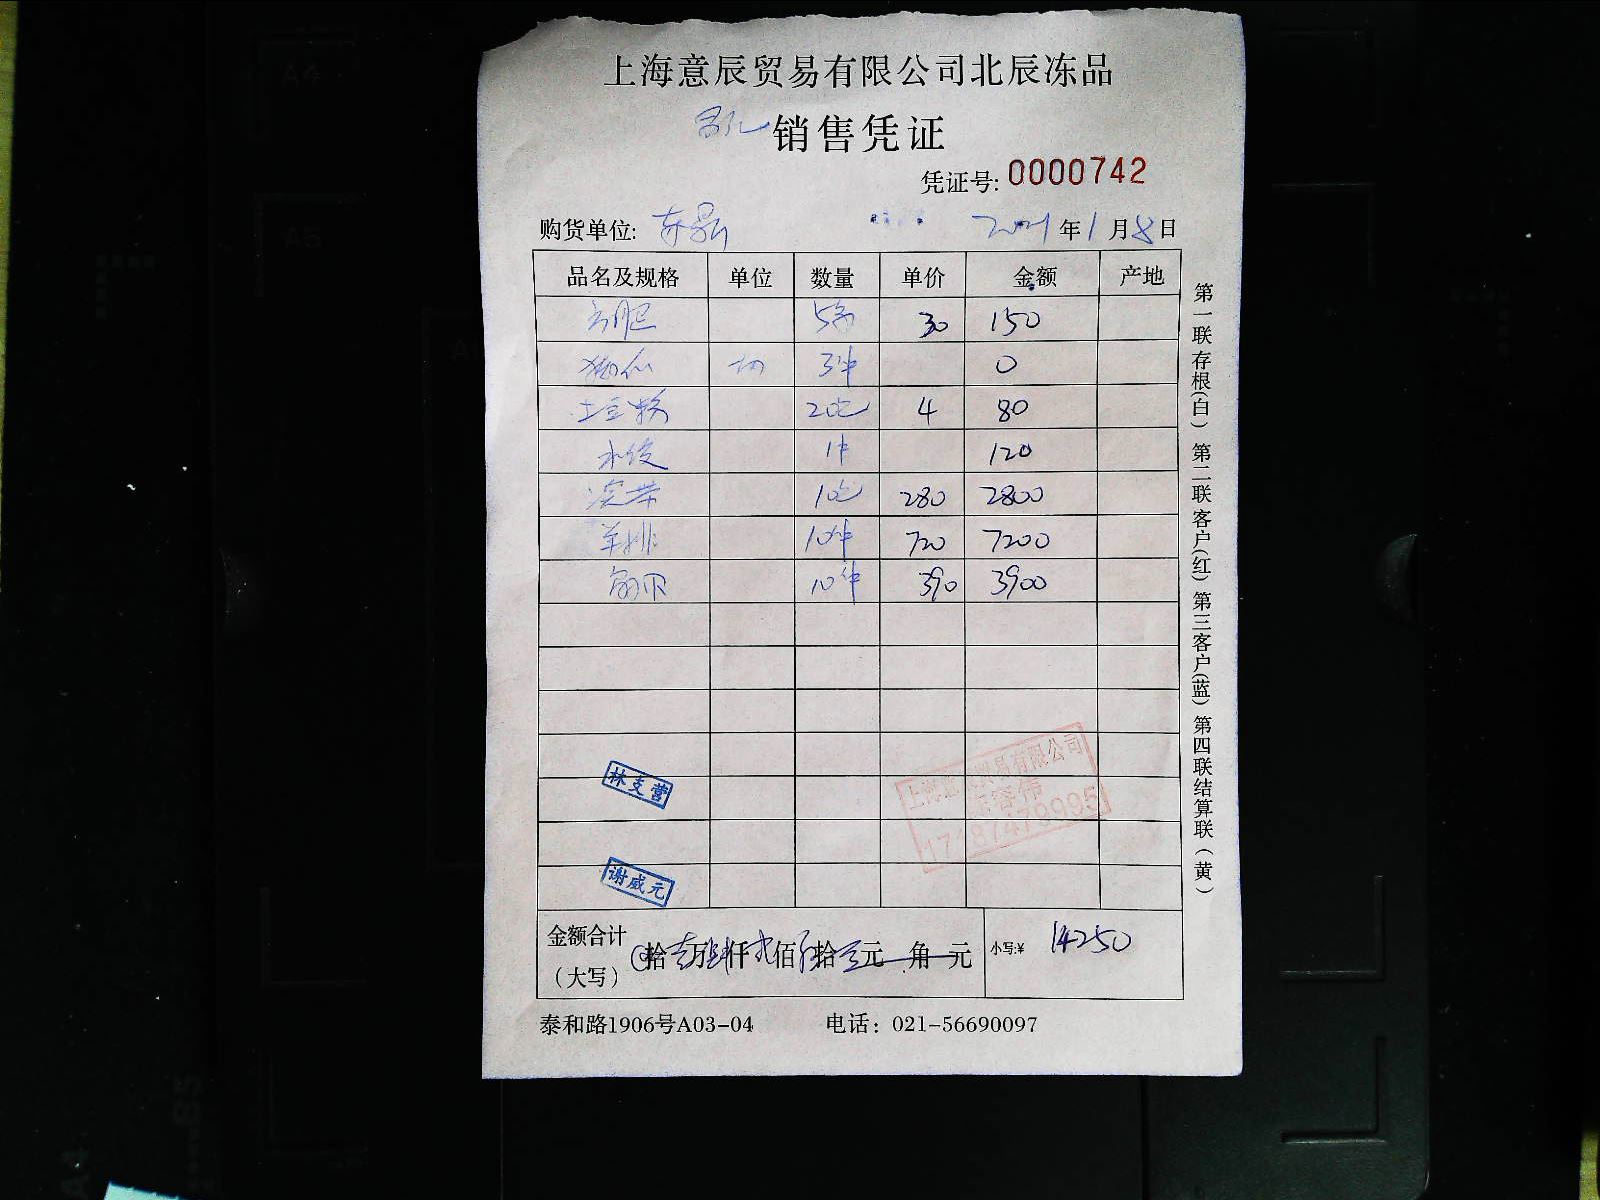 上海意辰贸易有限公司北辰冻品
销售凭证
凭证号: 0000742
购货单位: 2021年1月8日
品名及规格 单位 数量 单价 金额 产地
5 30 150
3件 0
土豆粉 20包 4 80
水饺 1件 120
10包 280 2800
羊排 10件 720 7200
扇贝 10件 390 3900
林支营
谢威元
贸易有限公司
金额合计
(大写) 拾壹万肆仟贰佰伍拾元 角 元 小写:¥ 14250
泰和路1906号A03-04 电话: 021-56690097
第一联存根(白) 第二联客户(红) 第三客户(蓝) 第四联结算联(黄)